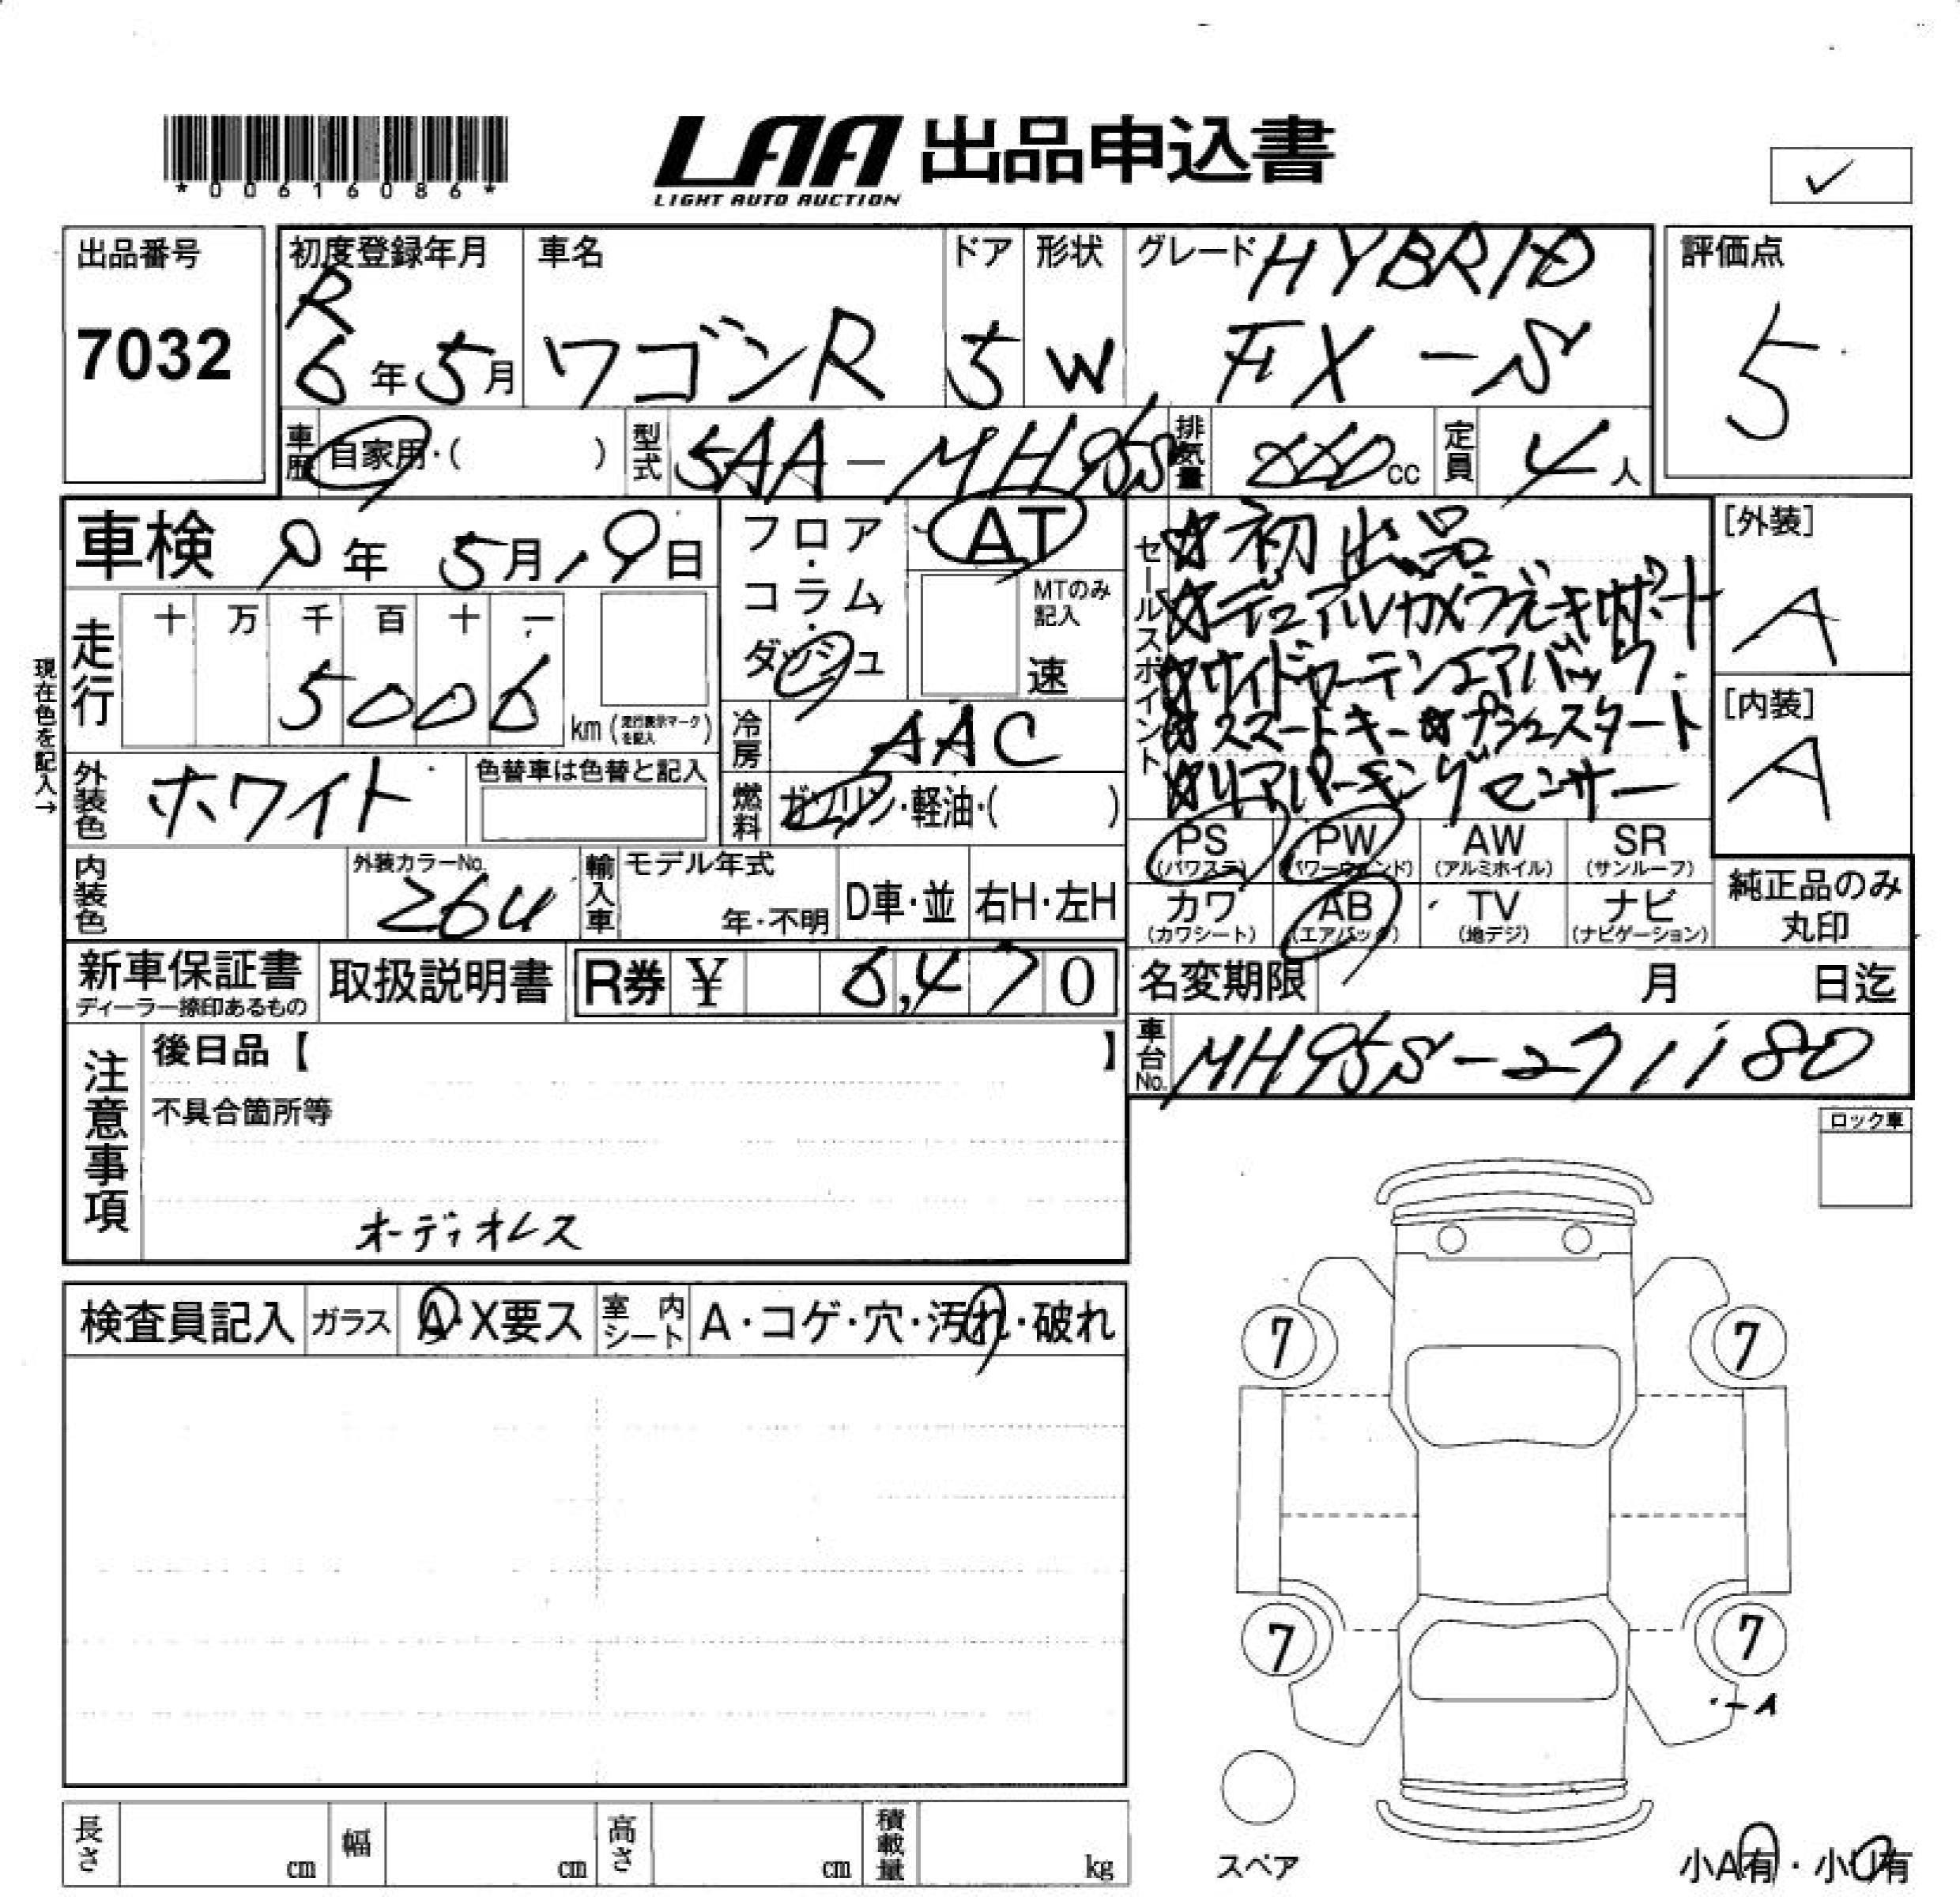 *00616086*
LAA 出品申込書
LIGHT AUTO AUCTION
✓
出品番号
7032
初度登録年月
R
6年5月
車名
ワゴンR
ドア
5
形状
W
グレード
HYBRID
FX-S
評価点
5
車歴
自家用・( )
型式
5AA-MH95S
排気量
660cc
定員
4人
車検
9年5月19日
フロア・コラム・ダッシュ
AT
MTのみ記入
速
セールスポイント
☆初出品
☆デュアルカメラブレーキサポート
☆サイドカーテンエアバッグ
☆スマートキー☆プッシュスタート
☆リアパーキングセンサー
[外装]
A
[内装]
A
現在色を記入→
走行
十 万 千 百 十 一
5006
km(走行表示マークを記入)
冷房
AAC
外装色
ホワイト
色替車は色替と記入
燃料
ガソリン・軽油・( )
PS
(パワステ)
PW
(パワーウィンド)
AW
(アルミホイル)
SR
(サンルーフ)
カワ
(カワシート)
AB
(エアバック)
TV
(地デジ)
ナビ
(ナビゲーション)
純正品のみ
丸印
内装色
外装カラーNo.
26U
輸入車
モデル年式
年・不明
D車・並
右H・左H
新車保証書
ディーラー捺印あるもの
取扱説明書
R券 ¥ 6,470
名変期限 月 日迄
車台No.
MH95S-271180
注意事項
後日品【 】
不具合箇所等
オーディオレス
ロック車
検査員記入
ガラス
A・X要ス
室内シート
A・コゲ・穴・汚れ・破れ
7
7
7
7
・-A
スペア
小A有・小U有
長さ cm
幅 cm
高さ cm
積載量 kg